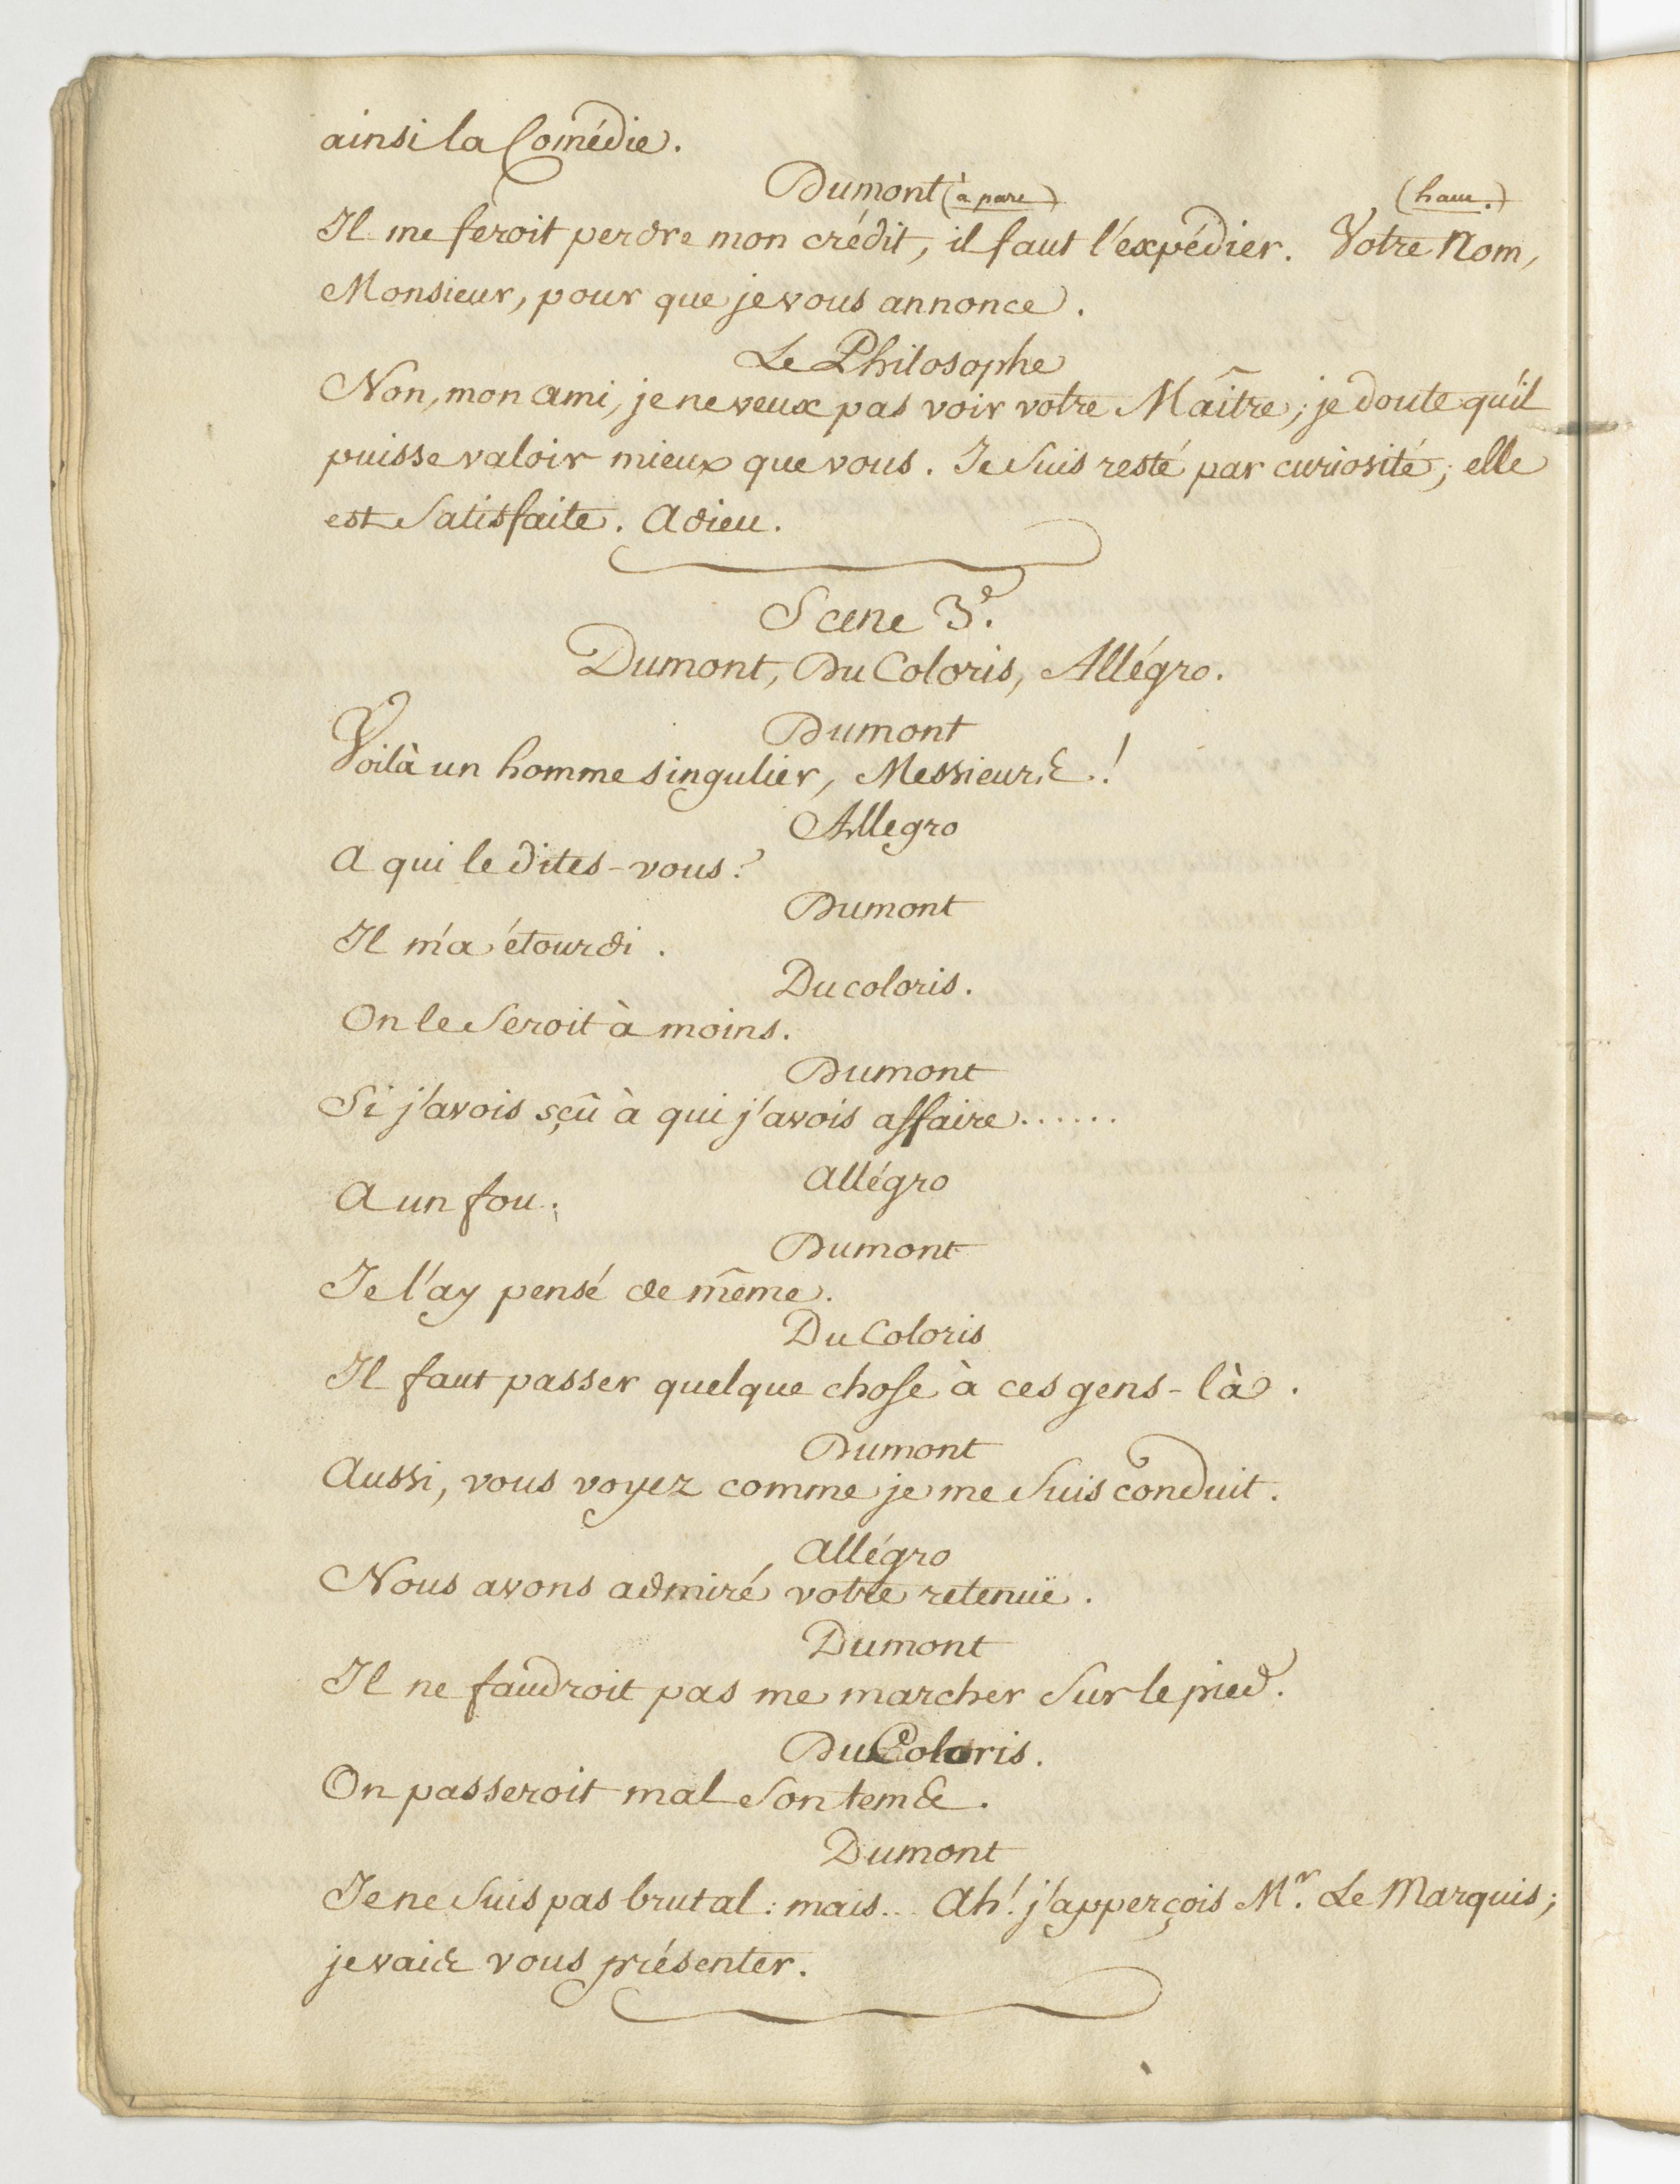 ainsi la Comédie.
Dumont (à part)
(haut.)
Il me feroit perdre mon crédit, il faut l'expédier. Votre nom,
Monsieur, pour que je vous annonce.
Le Philosophe
Non, mon ami, je ne veux pas voir votre Maître; je doute qu'il
puisse valoir mieux que vous. Je suis resté par curiosité; elle
est satisfaite. Adieu.
Scene 3e.
Dumont, Du Coloris, Allégro.
Dumont
Voilà un homme singulier, Messieurs.!
Allegro
A qui le dites-vous?
Dumont
Il m'a étourdi.
Ducoloris.
On le seroit à moins.
Dumont
Si j'avois sçû à qui j'avois affaire......
Allégro
A un fou.
Dumont
Je l'ay pensé de même.
Du Coloris
Il faut passer quelque chose à ces gens-là.
Dumont
Aussi, vous voyez comme je me suis conduit.
Allégro
Nous avons admiré votre retenuë.
Dumont
Il ne faudroit pas me marcher sur le pied.
Du Coloris.
On passeroit mal son tems.
Dumont
Je ne suis pas brutal: mais... Ah! j'apperçois Mr. Le Marquis;
je vais vous présenter.